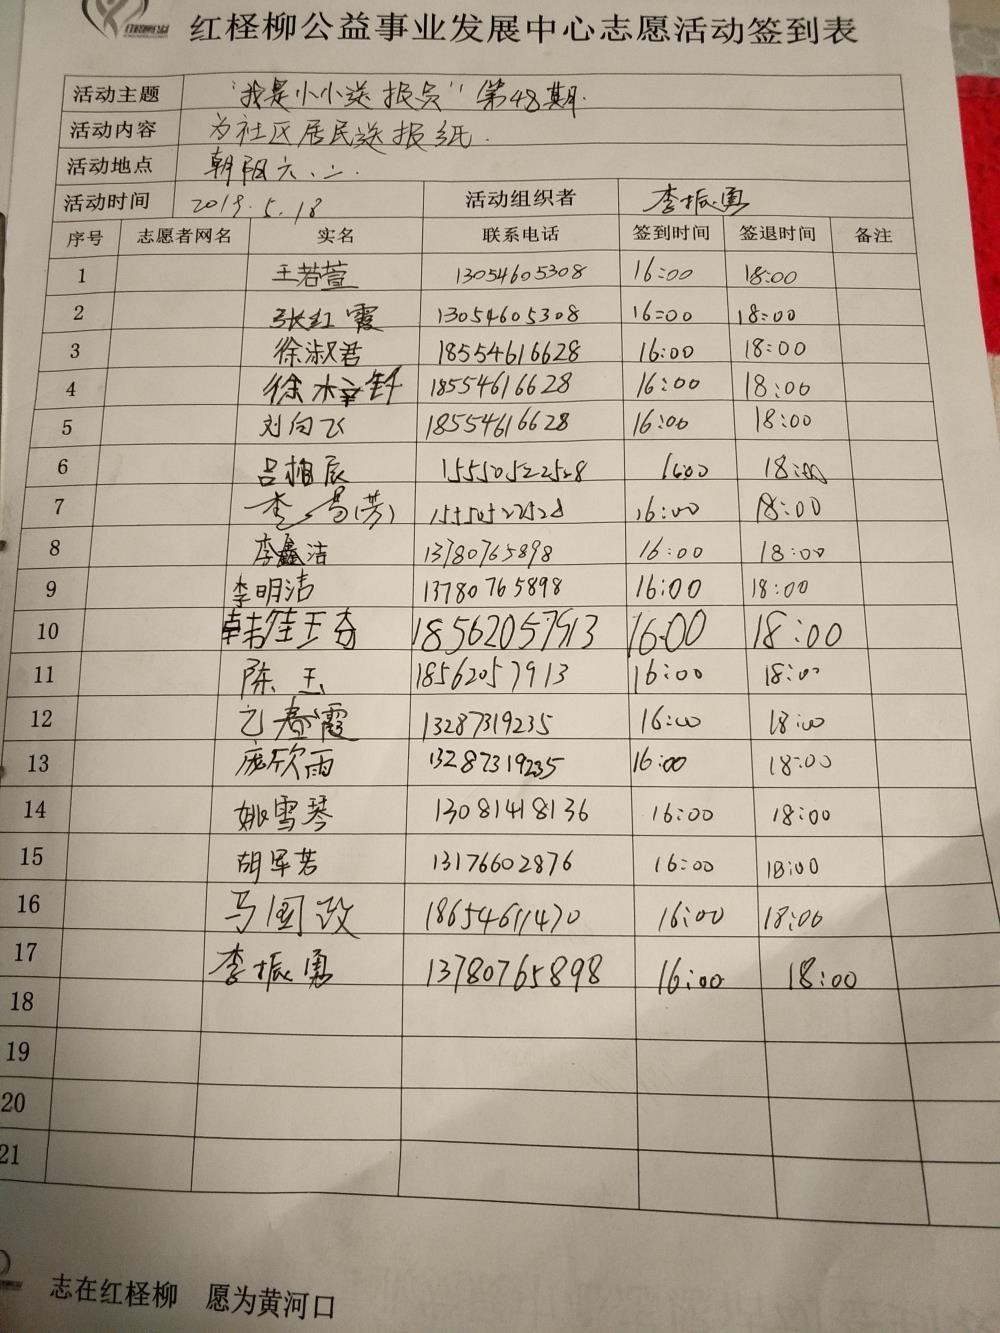 红柽柳公益事业发展中心志愿活动签到表
活动主题 "我是小小送报员"第48期.
活动内容 为社区居民送报纸.
活动地点 朝阳六、二.
活动时间 2019.5.18 活动组织者 李振勇
序号 志愿者网名 实名 联系电话 签到时间 签退时间 备注
1 王若萱 13054605308 16:00 18:00
2 张红霞 13054605308 16:00 18:00
3 徐淑君 18554616628 16:00 18:00
4 徐梓轩 18554616628 16:00 18:00
5 刘向飞 18554616628 16:00 18:00
6 吕相辰 15550522528 16:00 18:00
7 15550522528 16:00 18:00
8 李鑫洁 13780765898 16:00 18:00
9 李明洁 13780765898 16:00 18:00
10 18562057913 16:00 18:00
11 陈玉 18562057913 16:00 18:00
12 13287319235 16:00 18:00
13 庞欣雨 13287319235 16:00 18:00
14 姚雪琴 13081418136 16:00 18:00
15 胡军芳 13176602876 16:00 18:00
16 马国政 18654611470 16:00 18:00
17 李振勇 13780765898 16:00 18:00
18
19
20
21
志在红柽柳 愿为黄河口